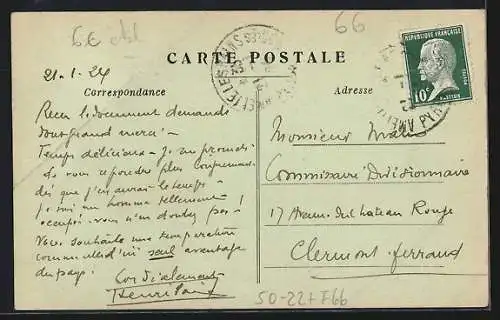 6€
66
CARTE POSTALE
REPUBLIQUE FRANÇAISE
10c
21-1-24
Correspondance
Adresse
Reçu le document demandé
tout grand merci.
Temps délicieux - je me promets
de vous répondre plus longuement
dès que j'en aurai le temps -
Je suis un homme tellement
occupé. vous n'en doutez pas !
Vous souhaite une température
comme celle d'ici seul avantage
du pays.
Cordialement
Henri
Monsieur
Commissaire Divisionnaire
17 du Château Rouge
Clermont-Ferrand
50-22+F66